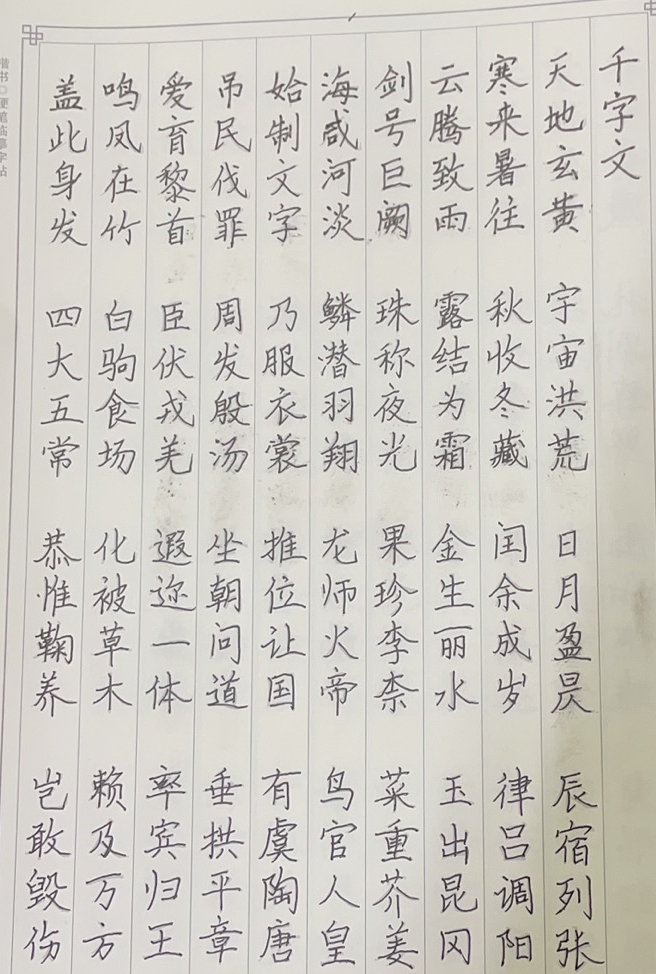 千字文
天地玄黄 宇宙洪荒 日月盈昃 辰宿列张
寒来暑往 秋收冬藏 闰余成岁 律吕调阳
云腾致雨 露结为霜 金生丽水 玉出昆冈
剑号巨阙 珠称夜光 果珍李柰 菜重芥姜
海咸河淡 鳞潜羽翔 龙师火帝 鸟官人皇
始制文字 乃服衣裳 推位让国 有虞陶唐
吊民伐罪 周发殷汤 坐朝问道 垂拱平章
爱育黎首 臣伏戎羌 遐迩一体 率宾归王
鸣凤在竹 白驹食场 化被草木 赖及万方
盖此身发 四大五常 恭惟鞠养 岂敢毁伤